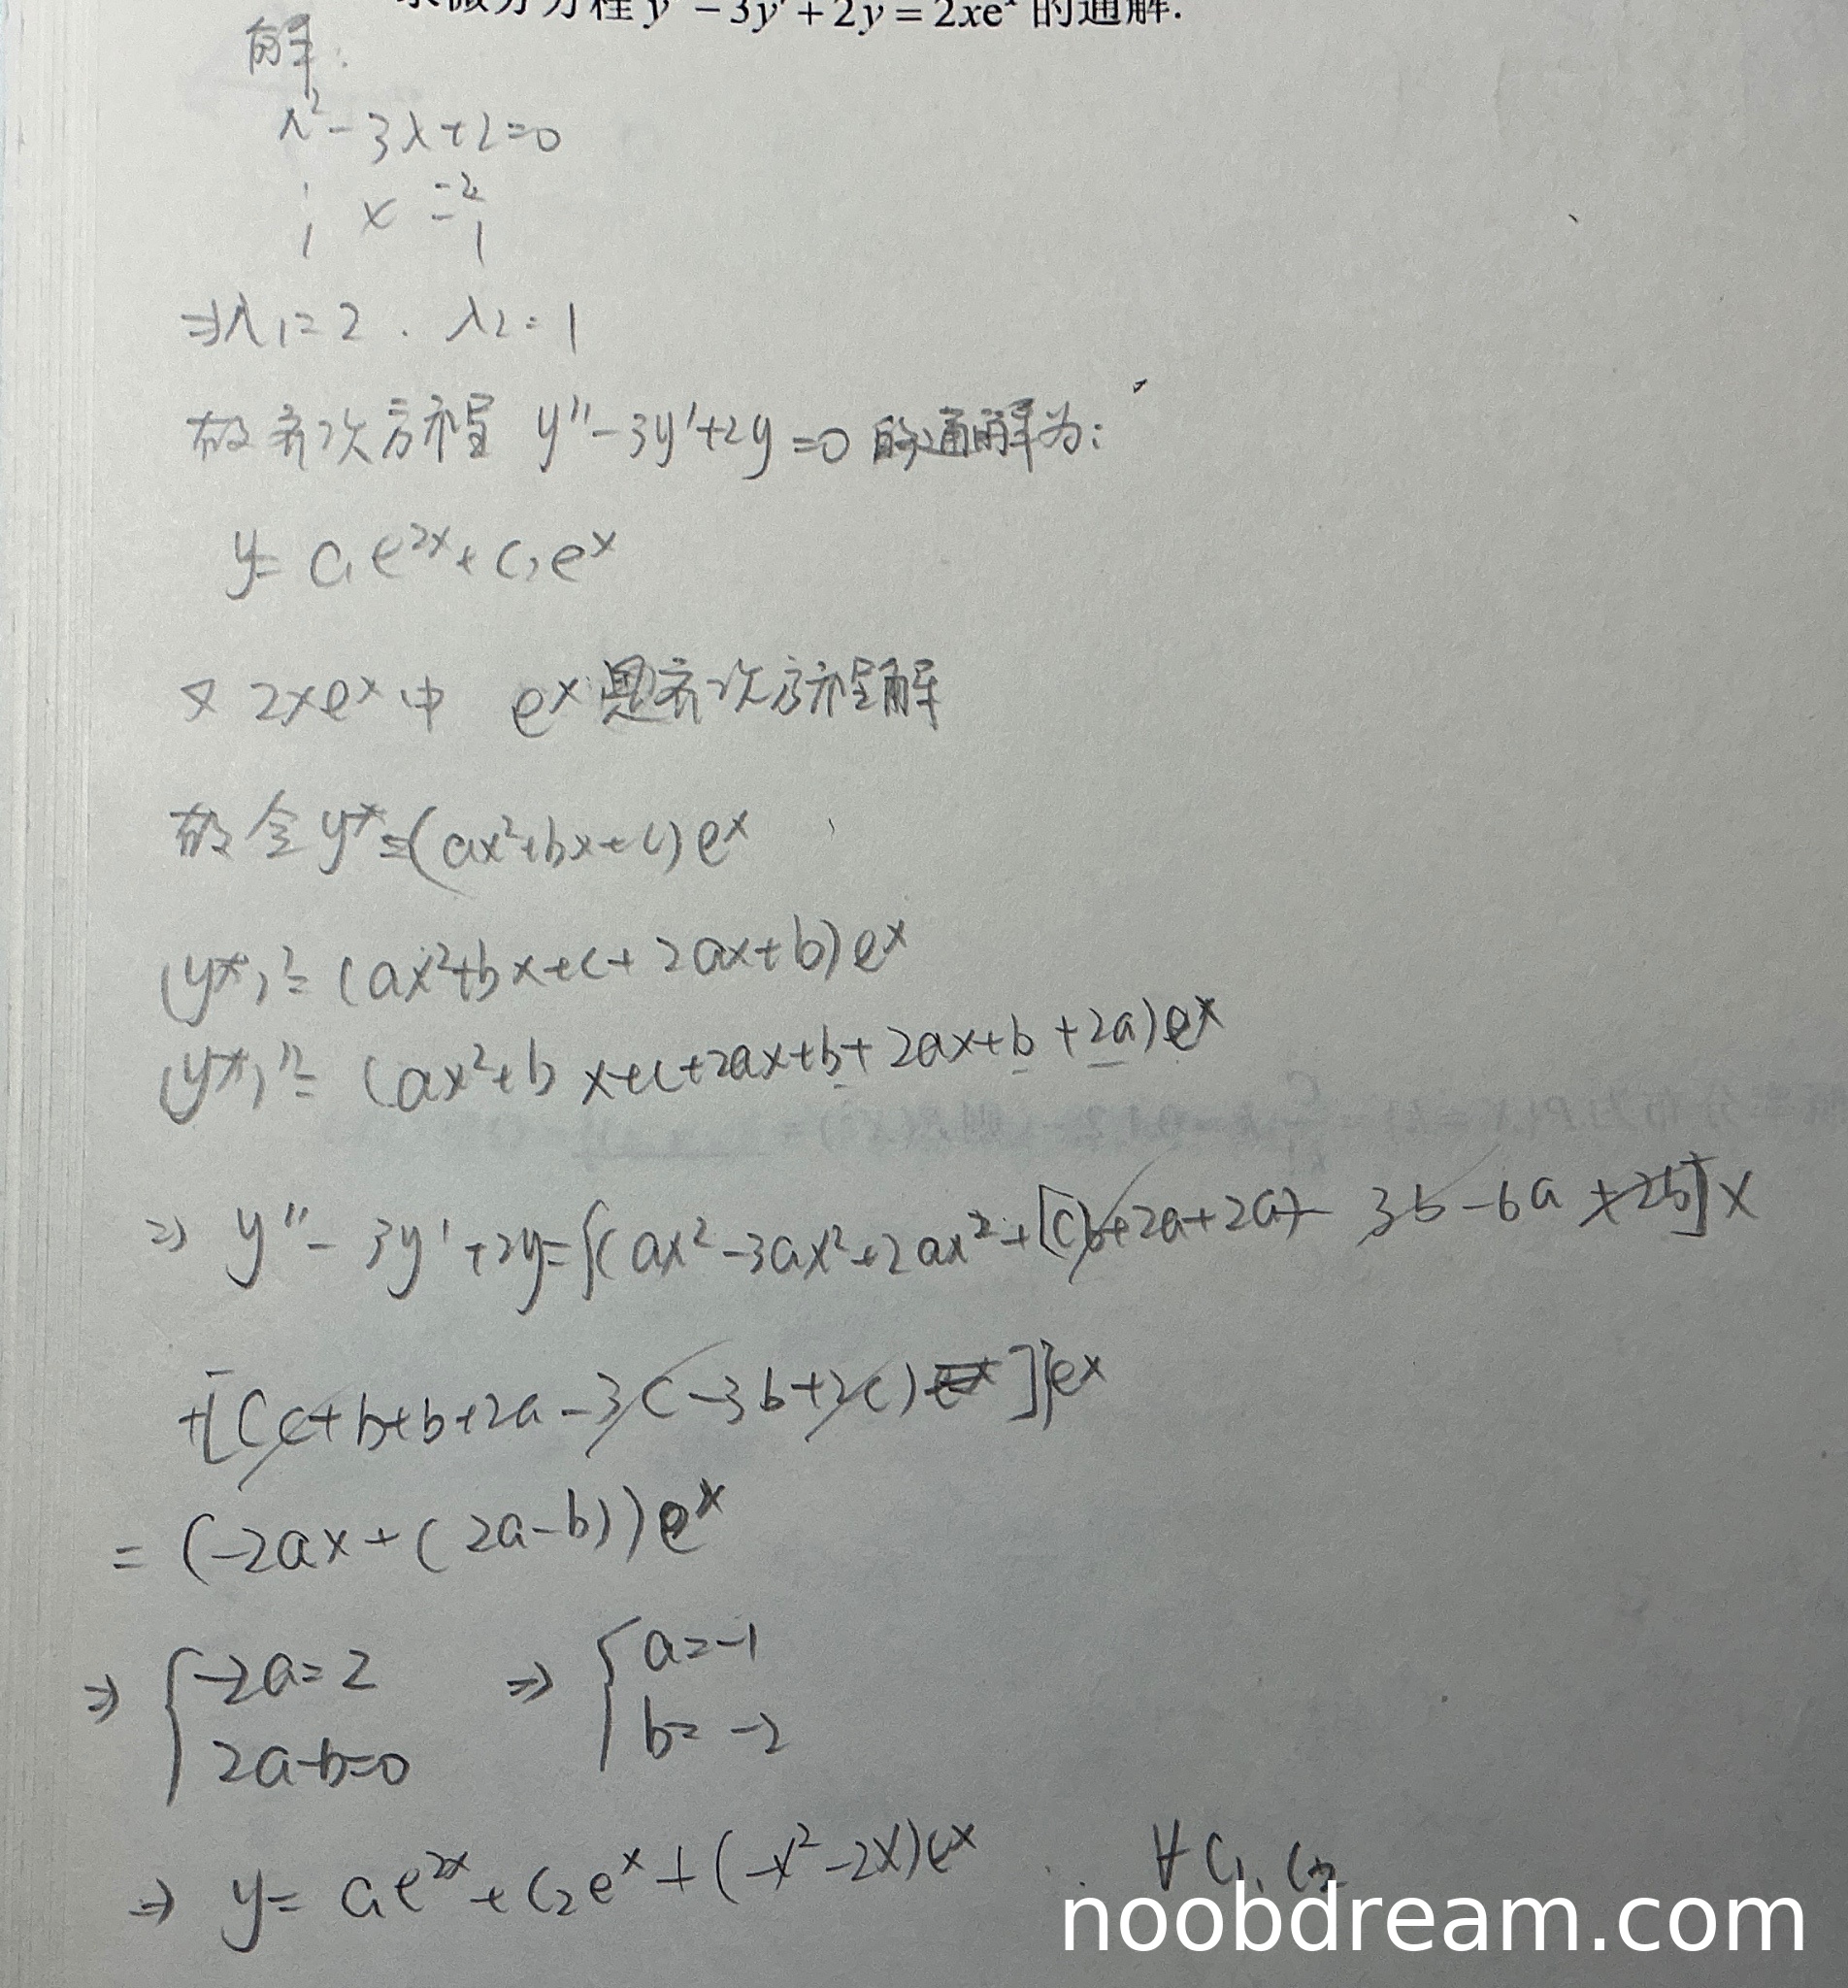 求微分方程 y″ − 3y′ + 2y = 2xeˣ 的通解.
解:
λ² - 3λ + 2 = 0
1 × -2
1 -1
⇒ λ₁ = 2 . λ₂ = 1
故齐次方程 y'' - 3y' + 2y = 0 的通解为:
y = C₁e²ˣ + C₂eˣ
又 2xeˣ 中 eˣ 是齐次方程解
故令 y* = (ax² + bx + c)eˣ
(y*)' = (ax² + bx + c + 2ax + b)eˣ
(y*)'' = (ax² + bx + c + 2ax + b + 2ax + b + 2a)eˣ
⇒ y'' - 3y' + 2y = {(ax² - 3ax² + 2ax² + [(b + 2a + 2a) - 3b - 6a + 2b]x
+ [(c + b + b + 2a - 3c - 3b + 2c)]}eˣ
= (-2ax + (2a - b))eˣ
⇒ { -2a = 2 ⇒ { a = -1
2a - b = 0 b = -2
⇒ y = C₁e²ˣ + C₂eˣ + (-x² - 2x)eˣ . ∀ C₁, C₂
noobdream.com